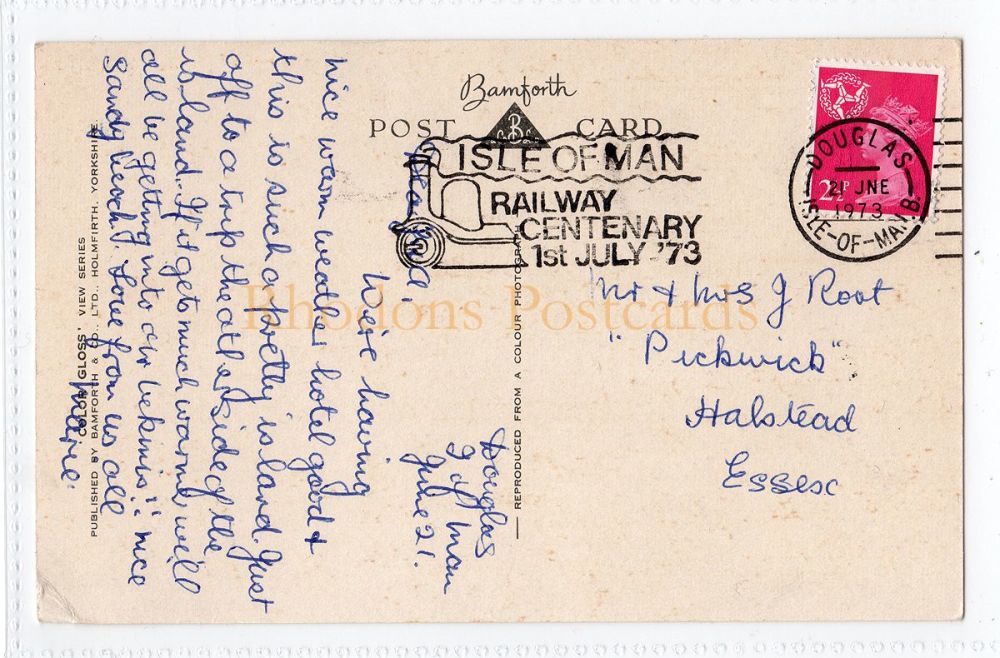 Bamforth
POST CARD
B
ISLE OF MAN
RAILWAY
CENTENARY
1st JULY '73
DOUGLAS
21 JNE
1973
ISLE-OF-MAN
B.
2½P
Mr & Mrs J Root
"Pickwick"
Halstead
Essex
Douglas
I of Man
June 21.
We're having
nice warm weather hotel good &
this is such a pretty island. Just
off to a trip the other side of the
island. If it gets much warmer we'll
all be getting into our bekinis!! nice
sandy beach! Love from us all
Marie.
REPRODUCED FROM A COLOUR PHOTOGRAPH
'COLOR GLOSS' VIEW SERIES
PUBLISHED BY BAMFORTH & CO., LTD., HOLMFIRTH, YORKSHIRE
Rhodons Postcards